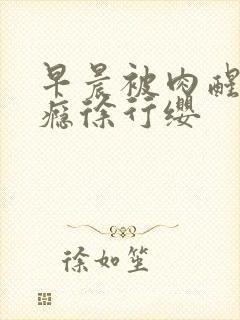 早晨被肉醒
瘾徐行缨
徐如笙